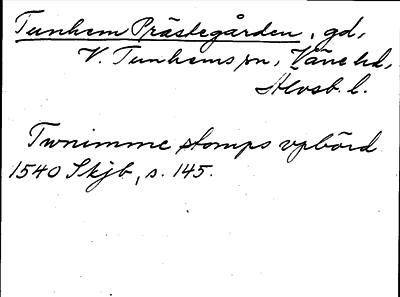 Tunhem Prästegården, gd,
V. Tunhems sn, Väne hd,
Älvsb. l.
Twnimme stomps vpbörd
1540 Skjb, s. 145.